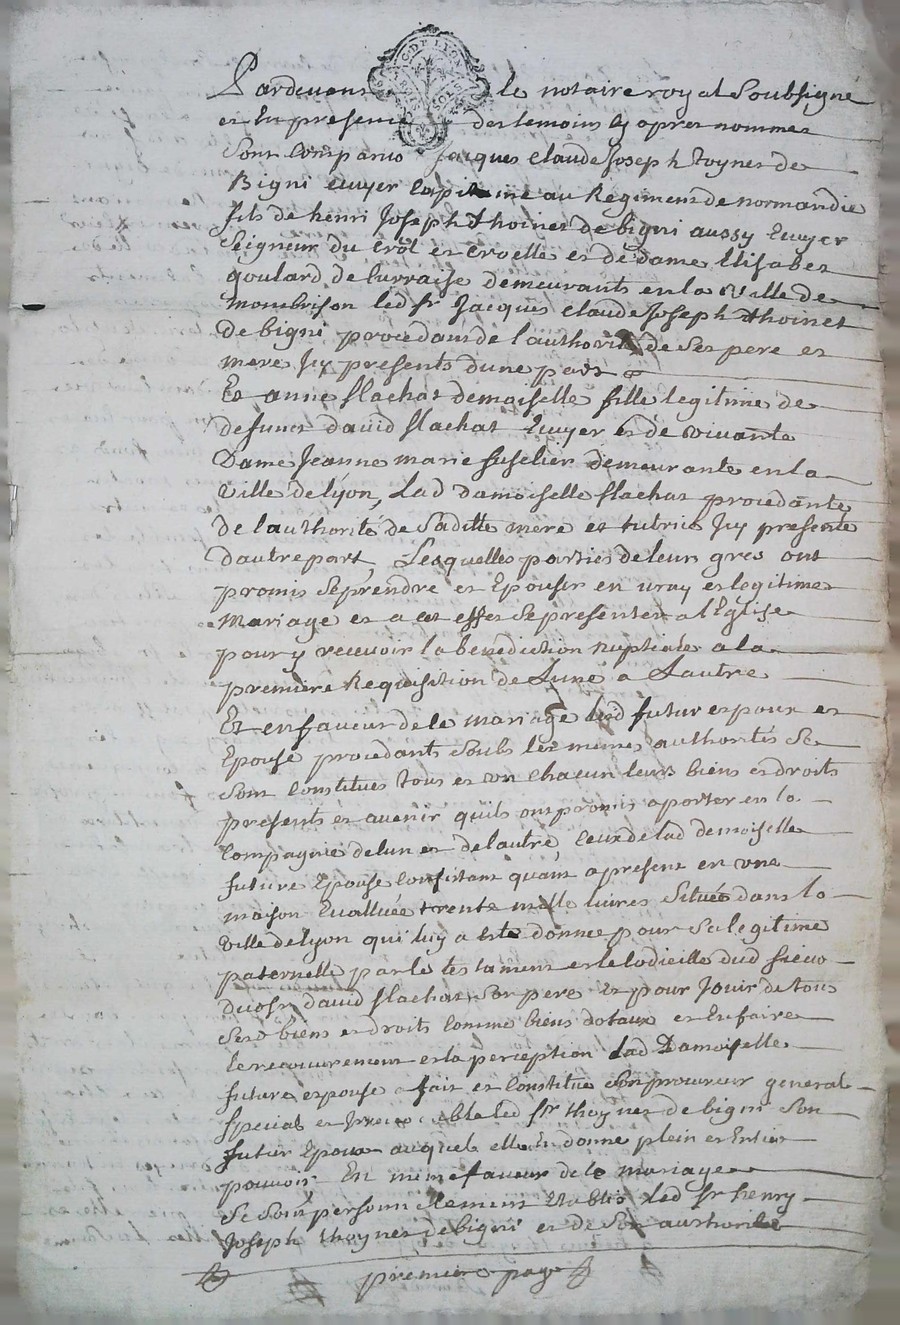 Pardevant le notaire royal soubsigne
et En presence des temoins cy apres nommes
Sont comparus Jacques claude Joseph toynet de
Bigni Ecuyer capitaine au Regiment de normandie
fils de henri Joseph thoinet de bigni aussy Ecuyer
Seigneur du et de dame Elisabet
goulard de curraise demeurants en la Ville de
monbrison led sr Jacques claude Joseph thoinet
De bigni procedant de l'authorité de ses pere et
mere Icy presents dune part
Et anne flachat demoiselle fille legitime de
defunct david flachat Ecuyer et de vivante
Dame Jeanne marie fuselier demeurante en la
Ville de lyon, Lad damoiselle flachat procedante
de l'authorité de saditte mere et tutrice Icy presente
d'autre part, Lesquelles parties de leur gres ont
promis se prendre et Epouser en vray et legitime
mariage et a cet effet se presenter a l'Eglise
pour y recevoir la benediction nuptiale a la
premiere Requisition de Lune a Lautre
Et en faveur de ce mariage led futur epoux et
Epouse procedants soubs les memes authorités se
sont constitués tous et un chacun leurs biens et droits
presents et avenir qu'ils ont promis aporter en la
compagnie de lun et de lautre, ceux de lad demoiselle
future Epouse consistant quant apresent en une
maison Evalluée trente mille livres située dans la
ville de lyon qui luy a este donnée pour sa legitime
paternelle par le testament et le codicille dud
david flachat son pere et pour Jouir de tous
ses biens et droits comme biens dotaux et En faire
le recouvrement et la perception Lad Damoiselle
future epouse a fait et constitué son procureur general
special et Irrevocable led sr thoynet de bigni son
futur Epoux auquel elle En donne plein et Entier
pouvoir En meme faveur de ce mariage
se sont personnellement Etablis led sr henry
Joseph thoynet de bigni et de son authorité
premiere page